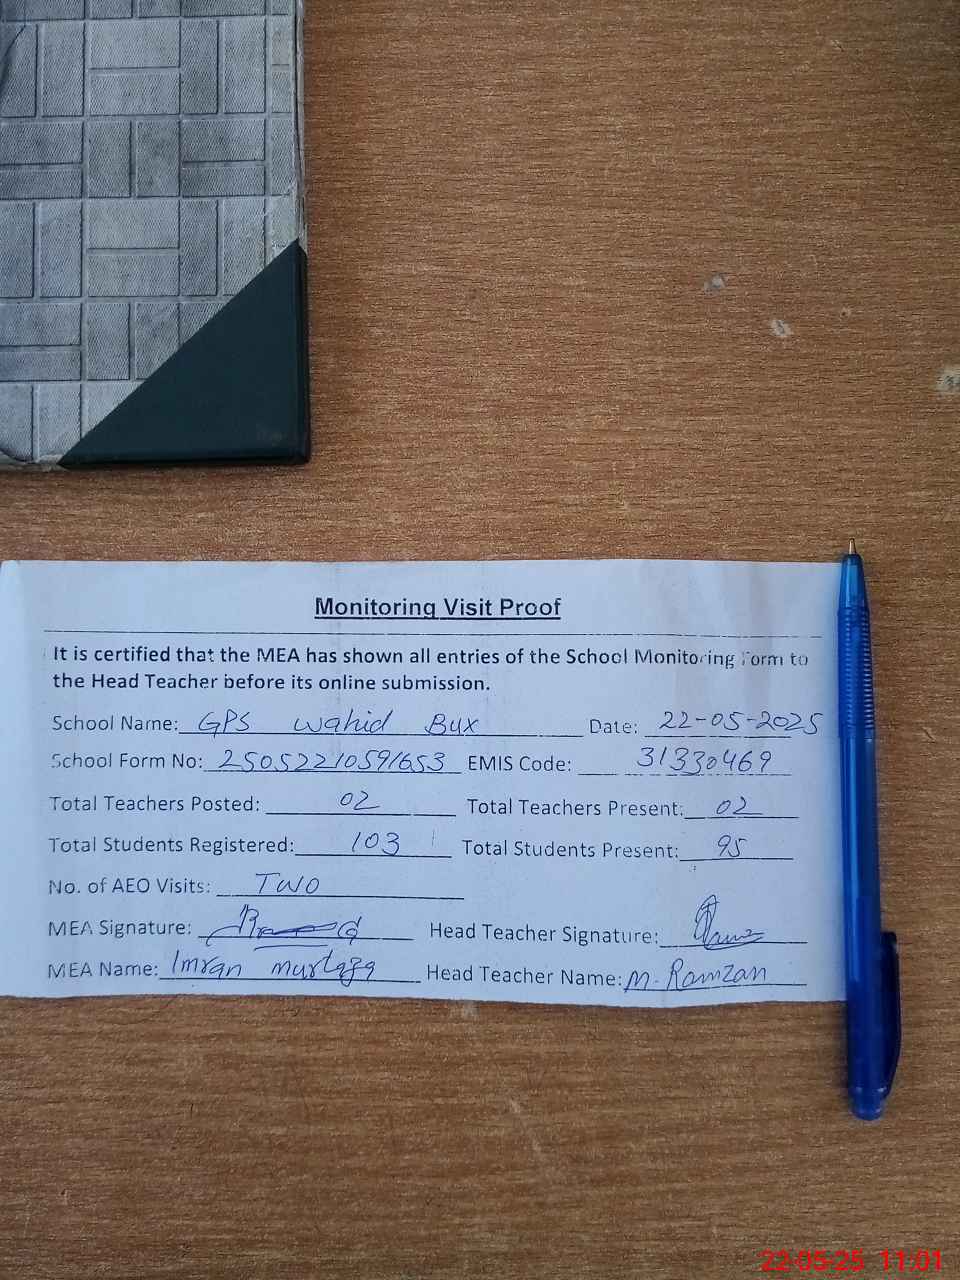 Monitoring Visit Proof
It is certified that the MEA has shown all entries of the School Monitoring Form to
the Head Teacher before its online submission.
School Name: GPS Wahid Bux Date: 22-05-2025
School Form No: 25052210591653 EMIS Code: 31330469
Total Teachers Posted: 02 Total Teachers Present: 02
Total Students Registered: 103 Total Students Present: 95
No. of AEO Visits: Two
MEA Signature: Head Teacher Signature:
MEA Name: Imran murtaza Head Teacher Name: M. Ramzan
22-05-25 11:01